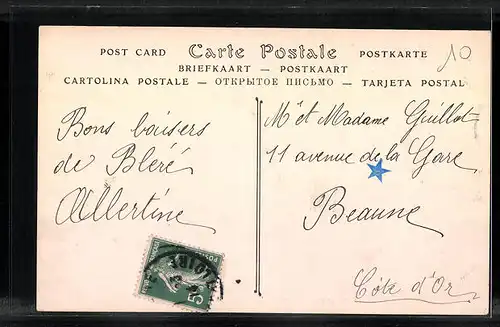 POST CARD Carte Postale POSTKARTE
BRIEFKAART — POSTKAART
CARTOLINA POSTALE — ОТКРЫТОЕ ПИСЬМО — TARJETA POSTAL
10
Bons baisers
de Bléré
Albertine
Mr et Madame Guillot
11 avenue de la Gare
Beaune
Côte d'Or
5